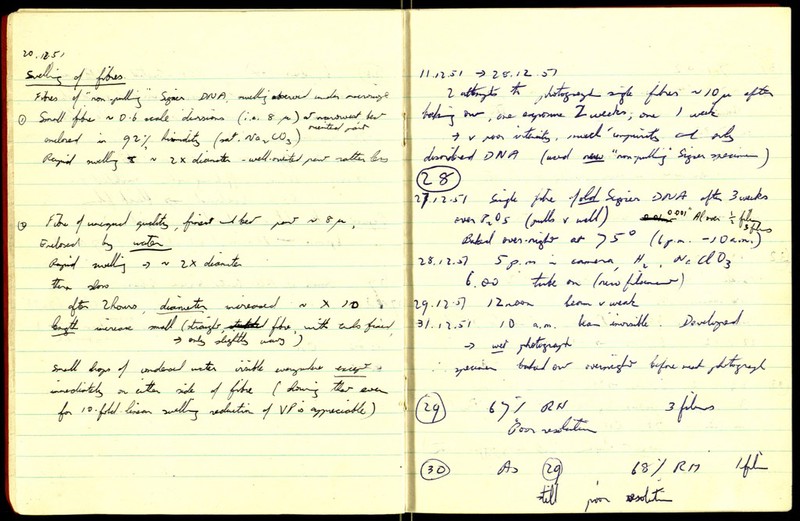 20.12.51
Swelling of fibres.
Fibres of "non-pulling" Signer DNA, swelling observed under microscope
① Small fibre ~ 0.6 scale divisions (i.e. 8 μ) at narrowest best
oriented part
enclosed in 92% humidity (sat. Na₂CO₃)
Rapid swelling ~ 2X diameter - well-oriented part rather less
② Fibre of unequal quality, finest and best part ~ 8 μ,
Enclosed by water
Rapid swelling → ~ 2X diameter
then slow
after 2 hours, diameter increased ~ X 10
length increase small (straight fibre, with ends fixed,
→ only slightly wavy)
Small drops of condensed water visible everywhere except
immediately on either side of fibre (showing that even
for 10-fold linear swelling reduction of VP is appreciable)
11.12.51 → 28.12.51
2 attempts to photograph single fibres ~ 10 μ after
baking out, one exposure 2 weeks, one 1 week
→ v poor intensity, much and only
disordered DNA (used new "non-pulling" Signer specimen)
28
27.12.51 Single fibre of old Signer DNA after 3 weeks
over P₂O₅ (pulls v well) 0.001" Al over ½ film
3 films
Baked overnight at 75° (6 p.m. - 10 a.m.)
28.12.51 5 p.m in camera, H₂, NaClO₃
6.00 tube on (new filament)
29.12.51 12 noon beam v weak
31.12.51 10 a.m. beam invisible. Developed
→ wet photograph
specimen baked out overnight before next photograph
29 67% RH 3 films
Poor resolution
30 As 29 68% RH 1 film
still poor resolution